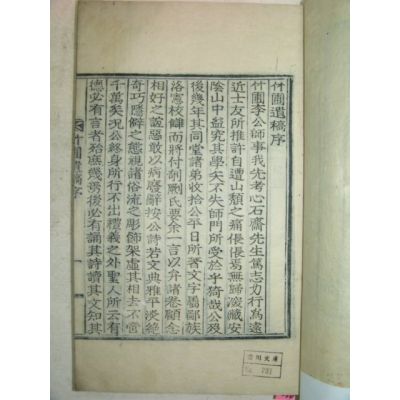 竹圃遺稿序
竹圃李公師事我先考心石齋先生篤志力行爲遠
近士友所推許自遭山頹之痛倀倀焉無歸深藏安
陰山中益究其學矣不失師門所受於乎猗哉公歿
後幾年其同堂諸弟收拾公平日所著文字屬鄙族
洛憲校讎而將付剞劂氏要余一言以弁諸卷顧念
相好之誼惡敢以病廢辭按公詩若文典雅平淡絶
奇巧隱僻之態視諸俗流之彫飾架虛其相去不啻
千萬矣況公終身所行不出禮義之外聖人所云有
德必有言者殆庶幾焉後必有誦其詩讀其文知其
竹圃遺稿序 一
川文庫